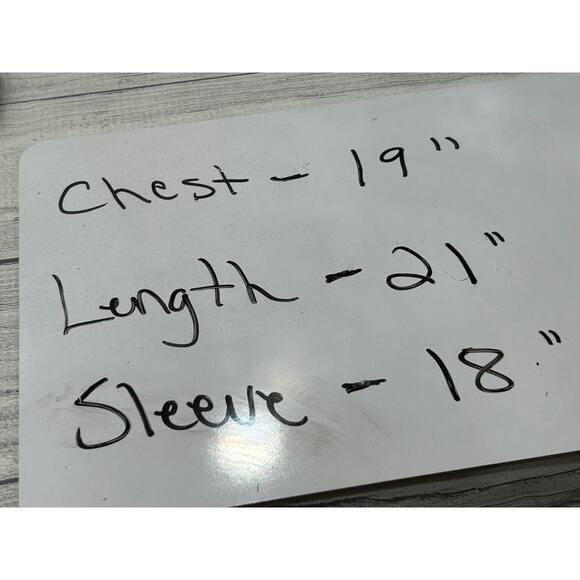 Chest - 19"
Length - 21"
Sleeve - 18"